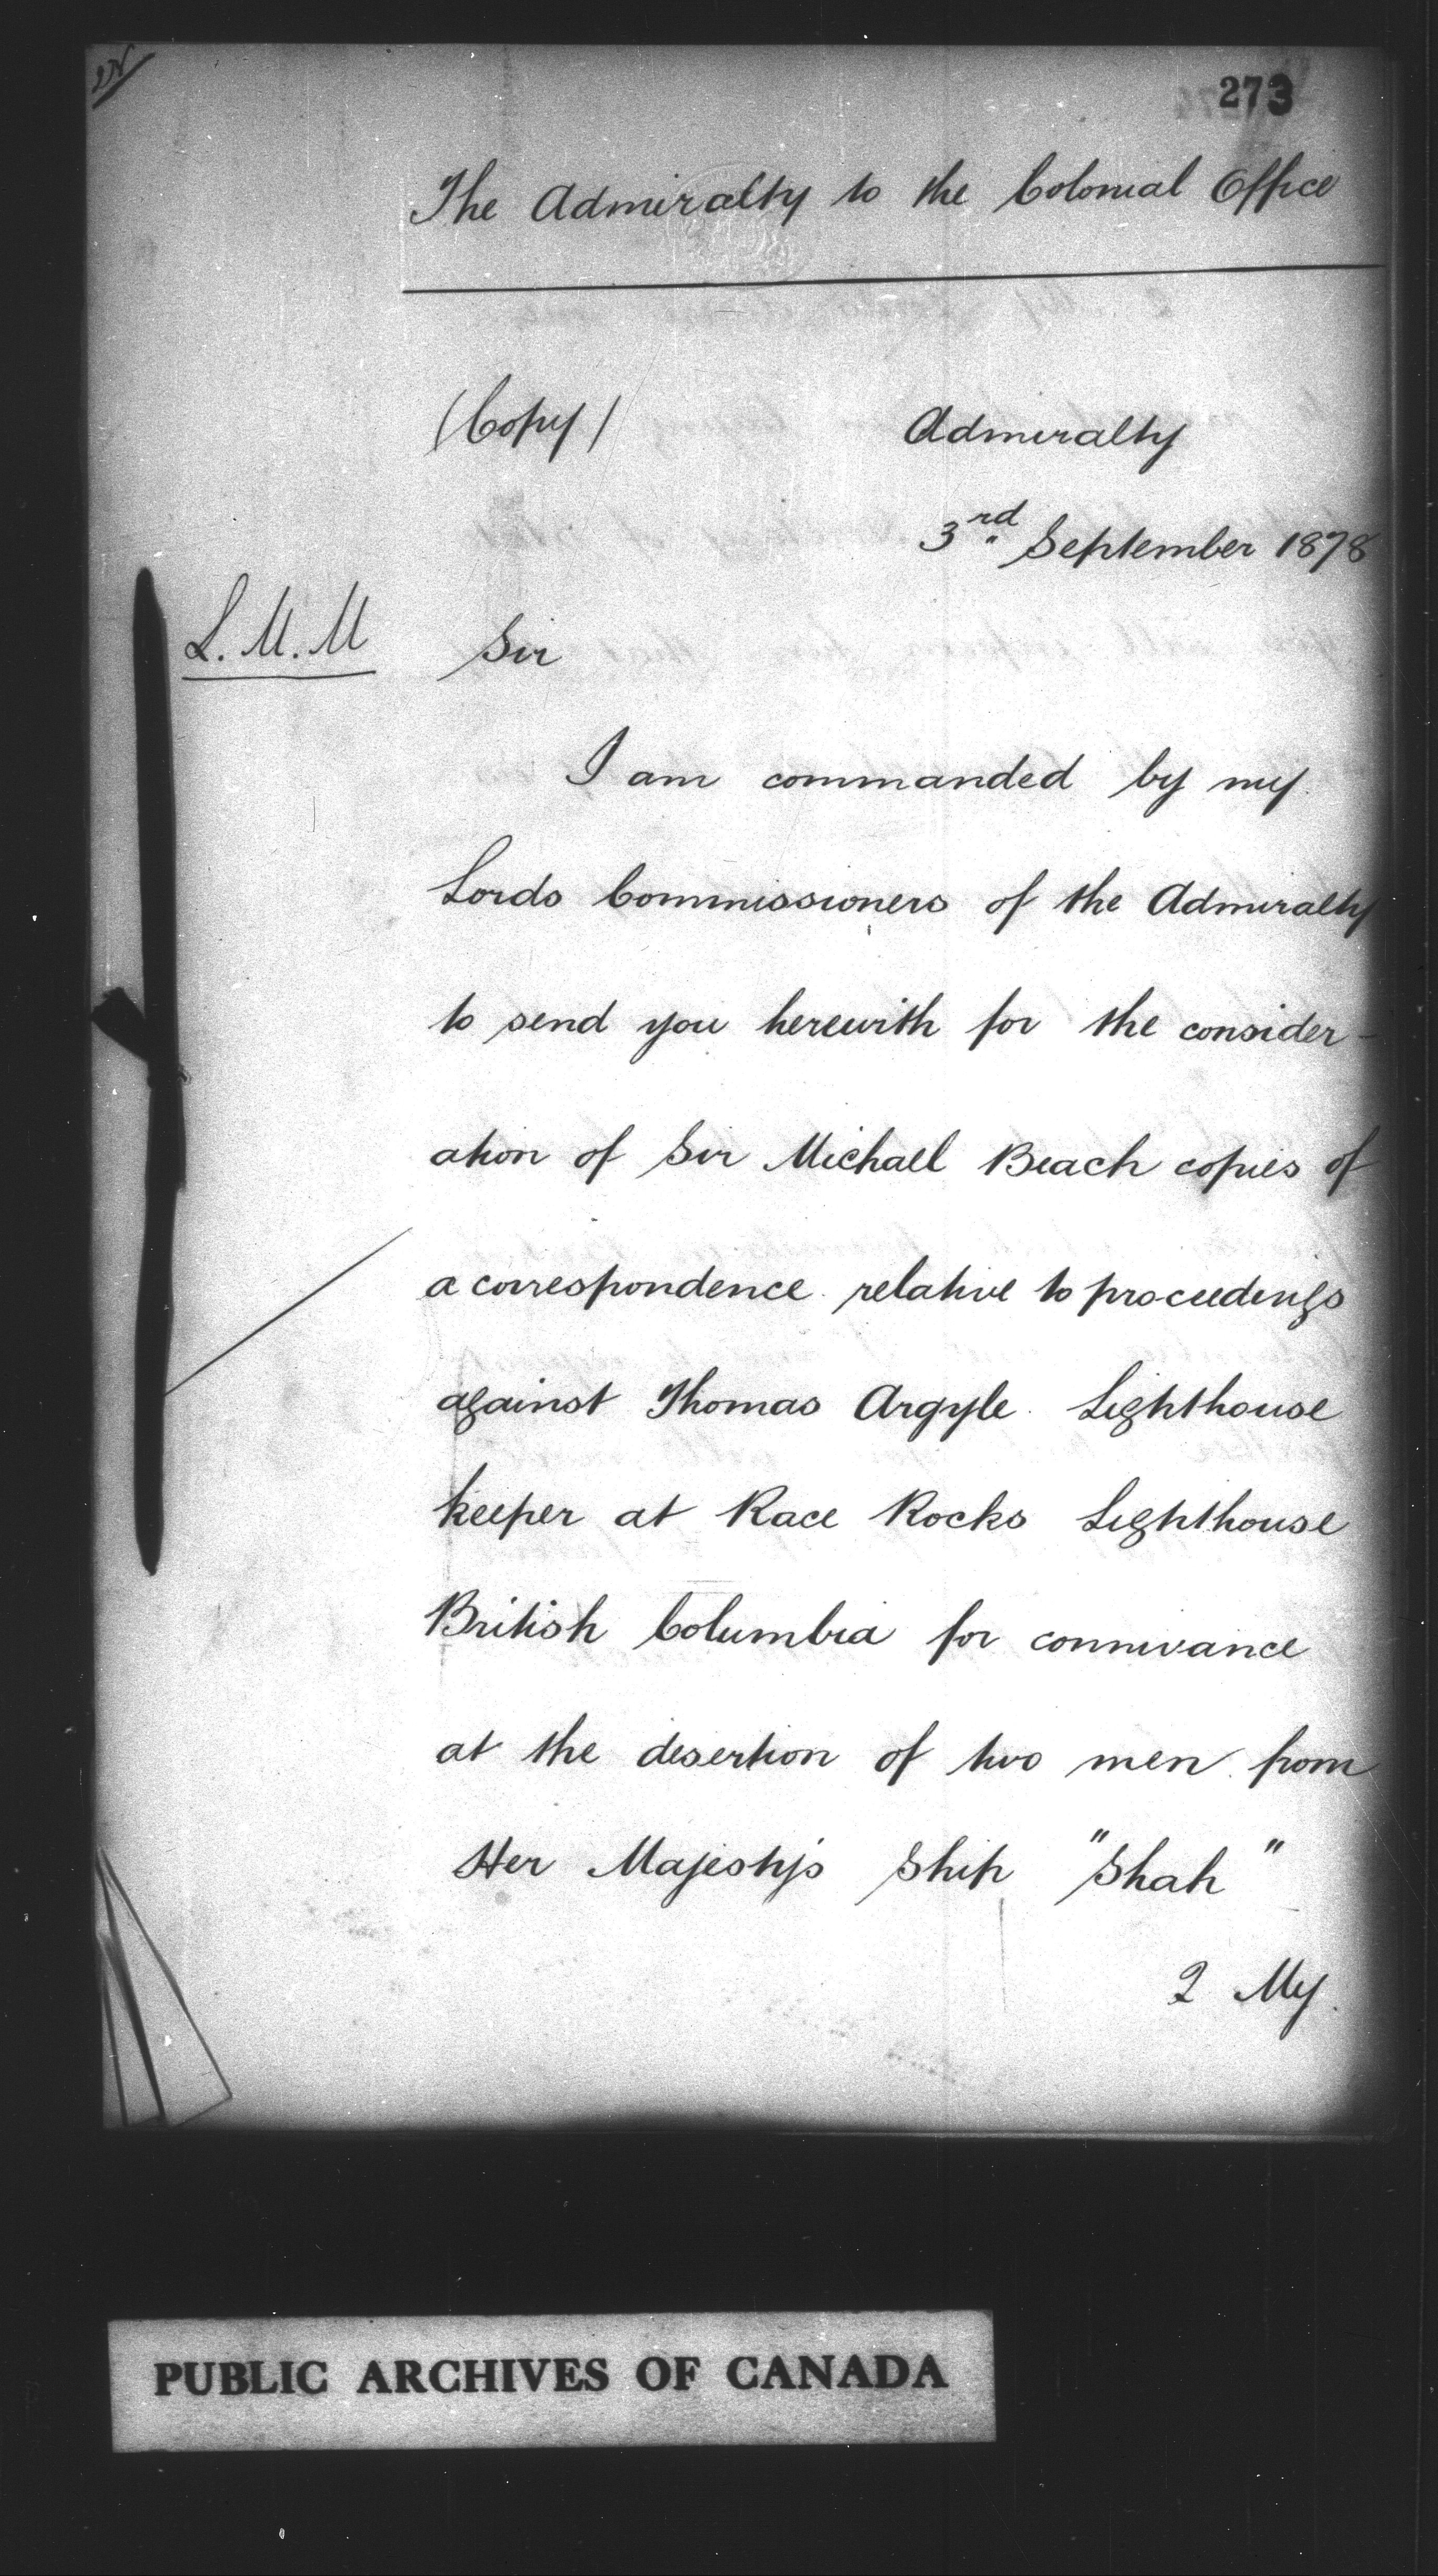 273
The Admiralty to the Colonial Office
(Copy)
Admiralty
3rd September 1878
L.M.M
Sir
I am commanded by my
Lords Commissioners of the Admiralty
to send you herewith for the consider-
ation of Sir Michael Beach copies of
a correspondence relative to proceedings
against Thomas Argyle Lighthouse
keeper at Race Rocks Lighthouse
British Columbia for connivance
at the desertion of two men from
Her Majesty's Ship "Shah"
2 My
PUBLIC ARCHIVES OF CANADA